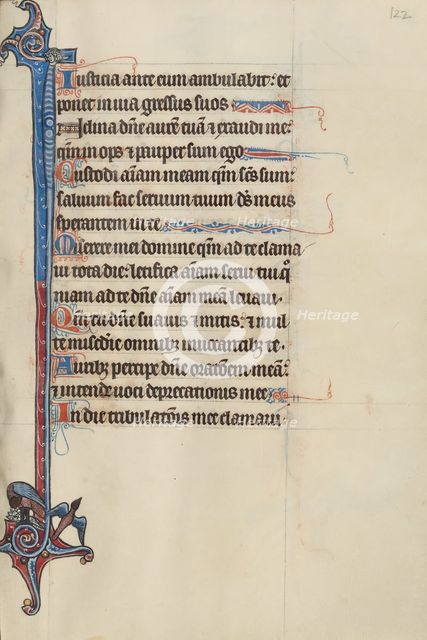 122
Iusticia ante eum ambulabit: et
ponet in uia gressus suos
Inclina dñe aurem tuā ⁊ exaudi me:
qm̄ inops ⁊ pauper sum ego
Custodi aīam meam qm̄ sc̄s sum:
saluum fac seruum tuum ds̄ meus
sperantem in te
Miserere mei domine qm̄ ad te clama
ui tota die: letifica aīam serui tui q̄
niam ad te dñe aīam meā leuaui.
Qm̄ tu dñe suauis ⁊ mitis: ⁊ mul
te mis̄die omnibꝫ inuocantibꝫ te.
Auribꝫ percipe dñe orat̄oem meā:
⁊ intende uoci deprecationis mee
In die tribulat̄ois mee clamaui
Heritage Heritage
Heritage Heritage